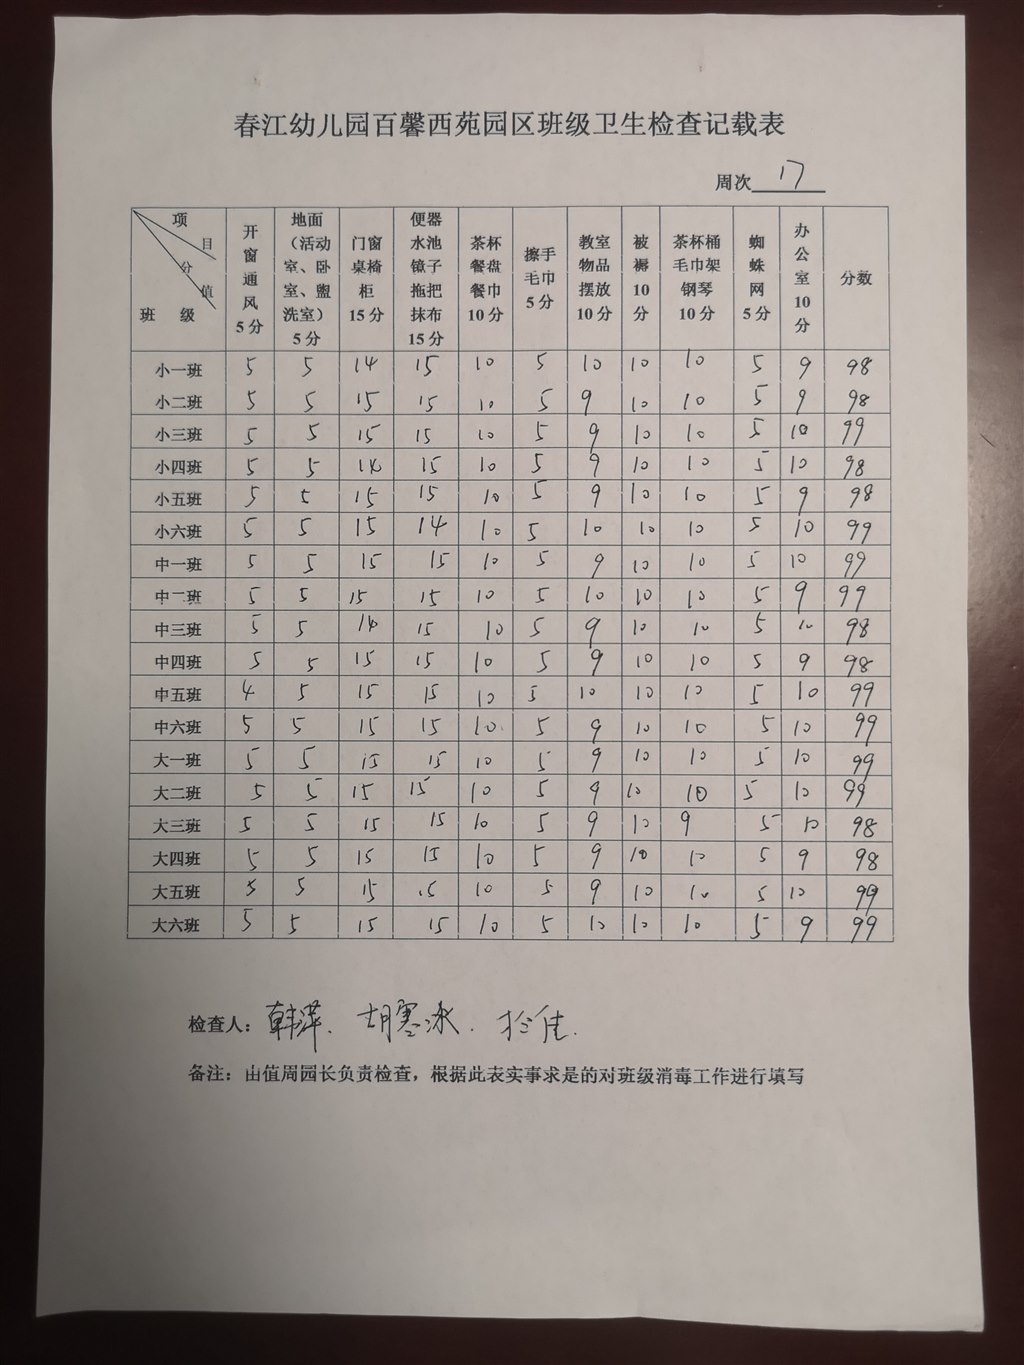 春江幼儿园百馨西苑园区班级卫生检查记载表
周次 17
项目 分值 班级 开窗通风5分 地面（活动室、卧室、盥洗室）5分 门窗桌椅柜15分 便器水池镜子拖把抹布15分 茶杯餐盘餐巾10分 擦手毛巾5分 教室物品摆放10分 被褥10分 茶杯桶毛巾架钢琴10分 蜘蛛网5分 办公室10分 分数
小一班 5 5 14 15 10 5 10 10 10 5 9 98
小二班 5 5 15 15 10 5 9 10 10 5 9 98
小三班 5 5 15 15 10 5 9 10 10 5 10 99
小四班 5 5 14 15 10 5 9 10 10 5 10 98
小五班 5 5 15 15 10 5 9 10 10 5 9 98
小六班 5 5 15 14 10 5 10 10 10 5 10 99
中一班 5 5 15 15 10 5 9 10 10 5 10 99
中二班 5 5 15 15 10 5 10 10 10 5 9 99
中三班 5 5 14 15 10 5 9 10 10 5 10 98
中四班 5 5 15 15 10 5 9 10 10 5 9 98
中五班 4 5 15 15 10 5 10 10 10 5 10 99
中六班 5 5 15 15 10 5 9 10 10 5 10 99
大一班 5 5 15 15 10 5 9 10 10 5 10 99
大二班 5 5 15 15 10 5 9 10 10 5 10 99
大三班 5 5 15 15 10 5 9 10 9 5 10 98
大四班 5 5 15 15 10 5 9 10 10 5 9 98
大五班 5 5 15 15 10 5 9 10 10 5 10 99
大六班 5 5 15 15 10 5 10 10 10 5 9 99
检查人：韩萍、胡寒冰、佳
备注：由值周园长负责检查，根据此表实事求是的对班级消毒工作进行填写